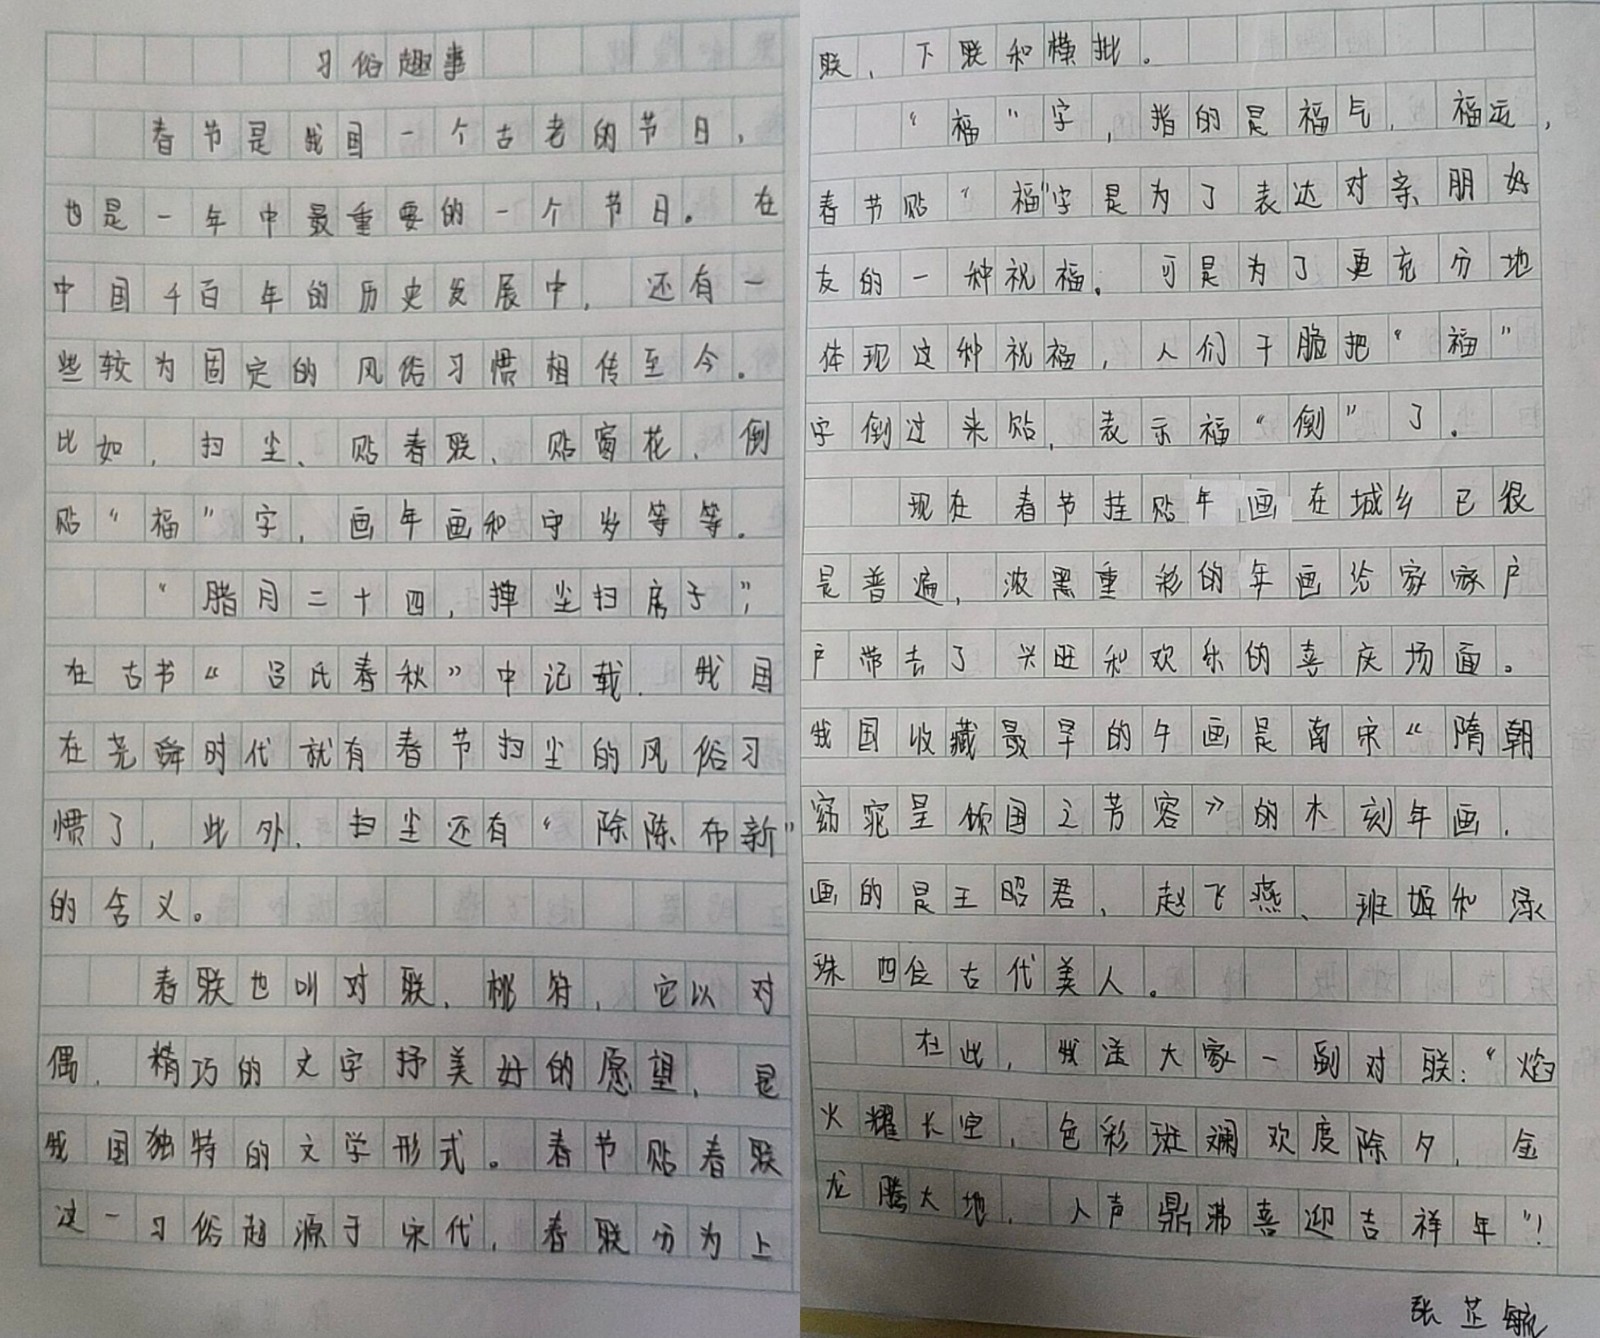 习俗趣事
春节是我国一个古老的节日，
也是一年中最重要的一个节日。在
中国千百年的历史发展中，还有一
些较为固定的风俗习惯相传至今。
比如，扫尘、贴春联、贴窗花、倒
贴“福”字，画年画和守岁等等。
“腊月二十四，掸尘扫房子”，
在古书“吕氏春秋”中记载，我国
在尧舜时代就有春节扫尘的风俗习
惯了，此外，扫尘还有“除陈布新”
的含义。
春联也叫对联，桃符，它以对
偶，精巧的文字抒美好的愿望，是
我国独特的文学形式。春节贴春联
这一习俗起源于宋代，春联分为上
联，下联和横批。
“福”字，指的是福气，福运，
春节贴“福”字是为了表达对亲朋好
友的一种祝福。可是为了更充分地
体现这种祝福，人们干脆把“福”
字倒过来贴，表示福“倒”了。
现在春节挂贴年画在城乡已很
是普遍，浓黑重彩的年画给家家户
户带去了兴旺和欢乐的喜庆场面。
我国收藏最早的年画是南宋“隋朝
窈窕呈倾国之芳容》的木刻年画，
画的是王昭君，赵飞燕、班姬和绿
珠四位古代美人。
在此，我送大家一副对联：“焰
火耀长空，色彩斑斓欢度除夕，金
龙腾大地，人声鼎沸喜迎吉祥年”！
张芷毓